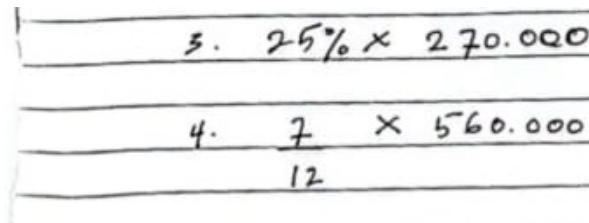 3. 25% × 270.000
4. 7/12 × 560.000